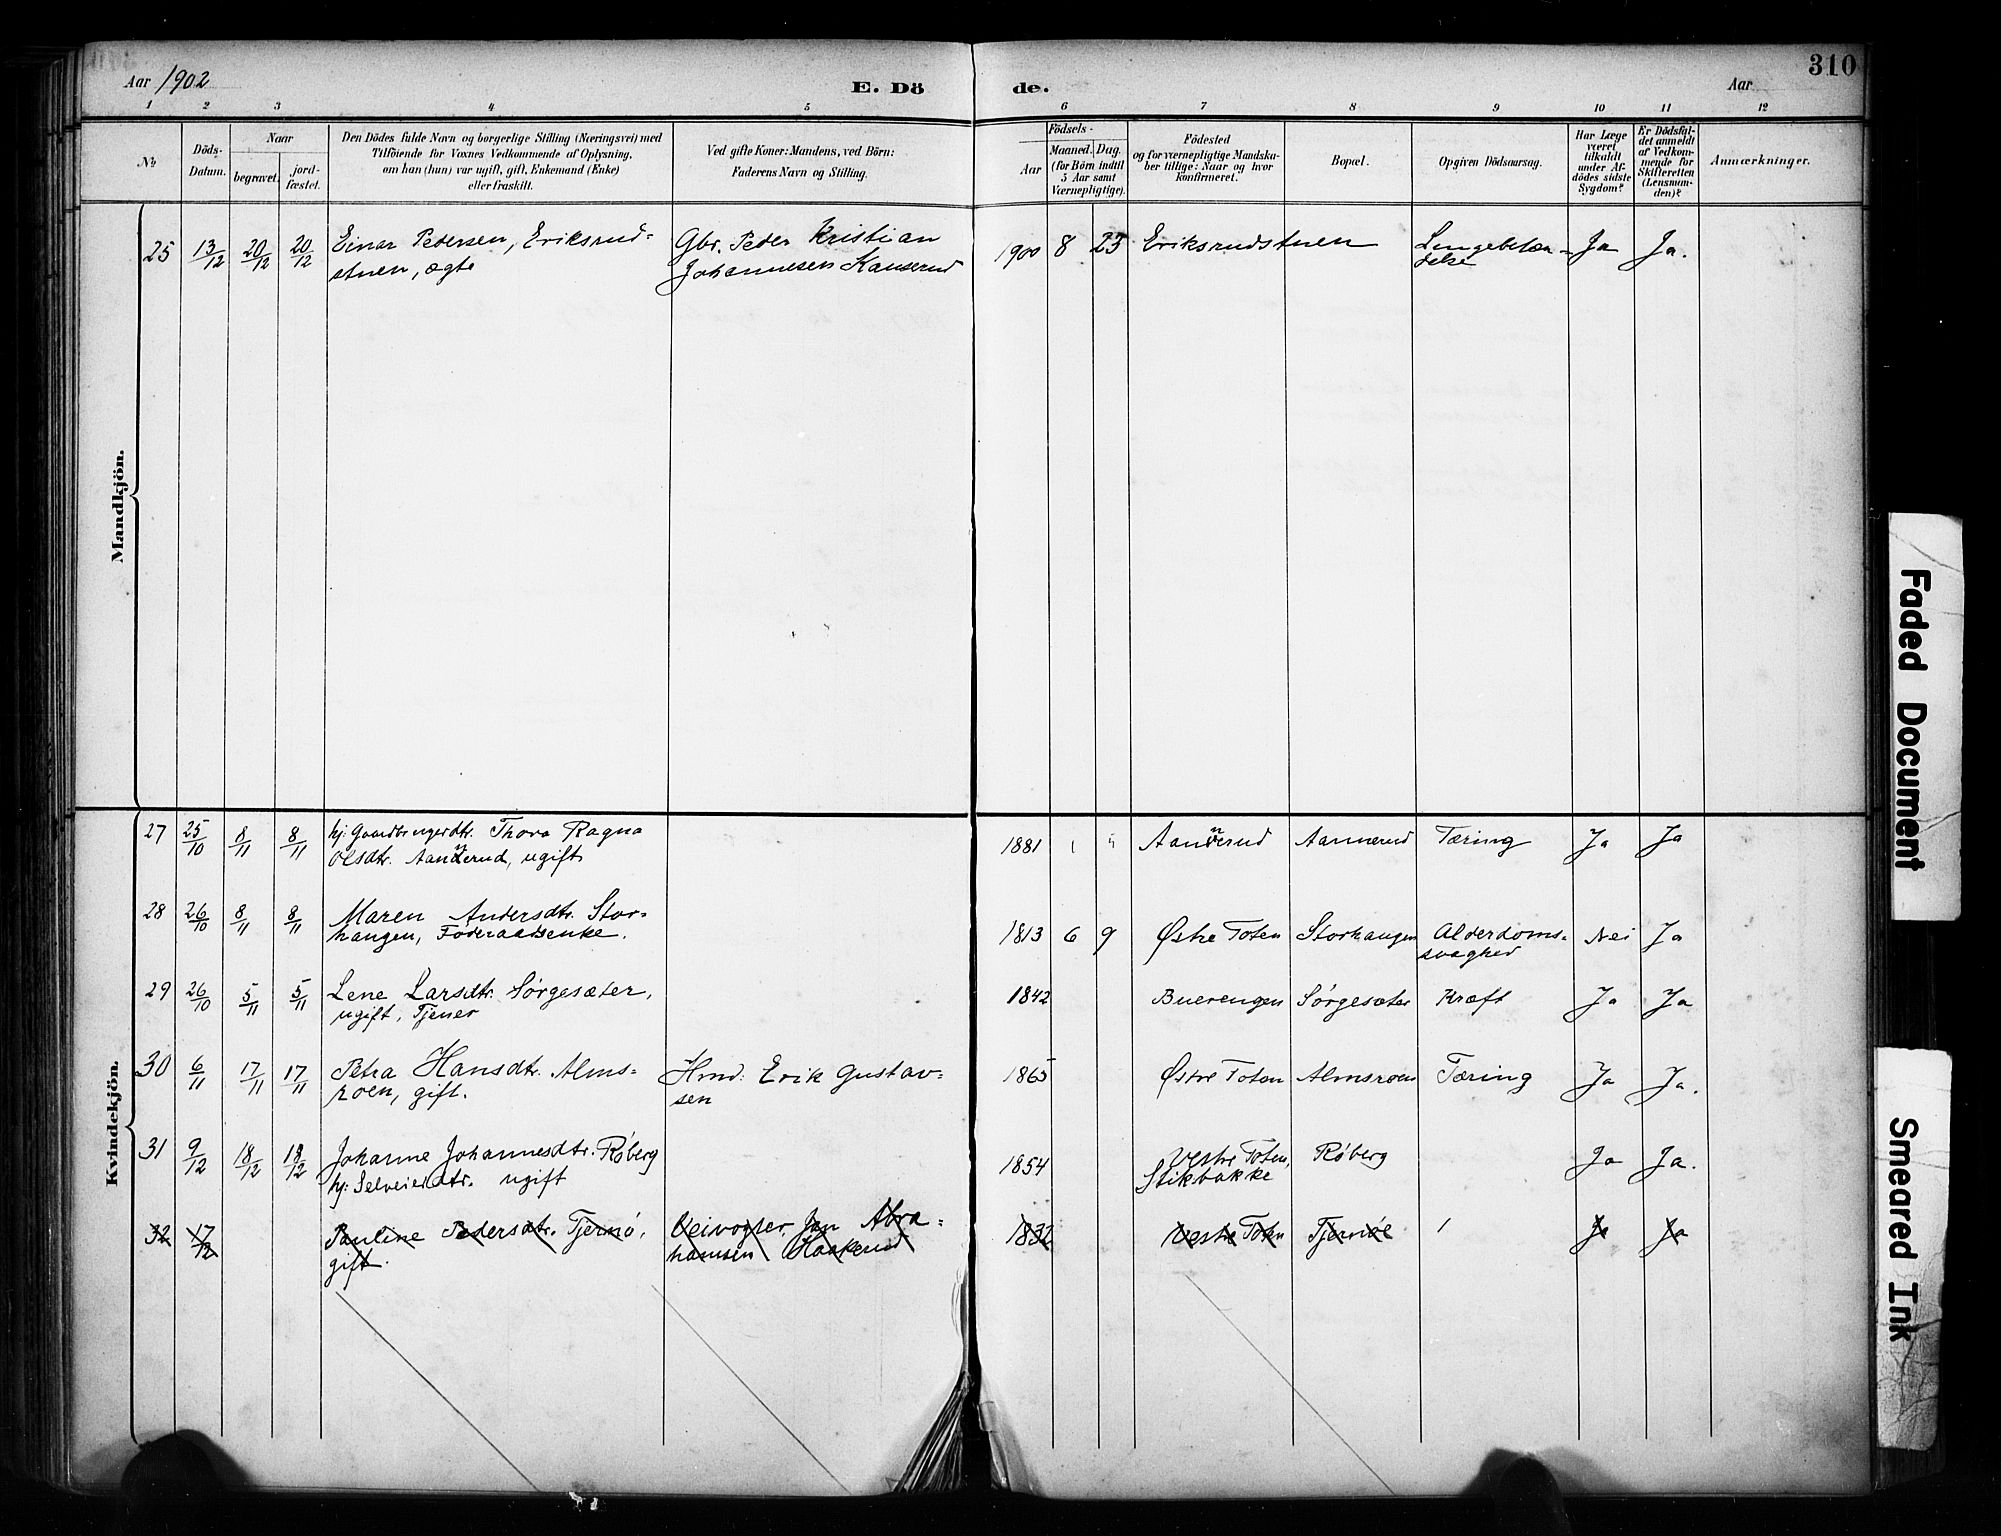 Aar 1902
E. Dö de.
Aar
310
1 2 3 4 5 6 7 8 9 10 11 12
No
Döds-Datum.
Naar
begravet.
jord-fæstet.
Den Dödes fulde Navn og borgerlige Stilling (Næringsvei) med
Tilföiende for Voxnes Vedkommende af Oplysning,
om han (hun) var ugift, gift, Enkemand (Enke)
eller fraskilt.
Ved gifte Koner: Mandens, ved Börn:
Faderens Navn og Stilling.
Födsels-
Aar
Maaned. Dag.
(for Börn indtil
5 Aar samt
Værnepligtige).
Födested
og for værnepligtige Mandska-
ber tillige: Naar og hvor
konfirmeret.
Bopæl.
Opgiven Dödsaarsag.
Har Læge
været
tilkaldt
under Af-
dödes sidste
Sygdom?
Er Dödsfal-
det anmeldt
af Vedkom-
mende for
Skifteretten
(Lensman-
den)?
Anmærkninger.
Mandkjön.
25 13/12 20/12 20/12 Einar Pedersen, Eriksrud- Gbr. Peder Kristian 1900 8 23 Eriksrudstuen Lungebetæn- Ja Ja.
stuen, ægte Johannesen Kauserud delse
Kvindekjön.
27 25/10 8/11 8/11 hj: Gaardbrugerdtr. Thora Ragna 1881 Aannerud Aannerud Tæring Ja Ja
Olsdtr. Aannerud, ugift
28 26/10 8/11 8/11 Maren Andersdtr. Stor- 1813 6 9 Østre Toten Storhaugen Alderdoms- Nei Ja
haugen, Føderaadsenke. svaghed
29 26/10 5/11 5/11 Lene Larsdtr. Sørgesæter, 1842 Buerengen Sørgesæter Kræft Ja Ja
ugift, Tjener
30 6/11 17/11 17/11 Petra Hansdtr. Alms- Hmd. Erik Gustav- 1865 Østre Toten Almsroen Tæring Ja Ja.
roen, gift. sen
31 9/12 18/12 18/12 Johanne Johannesdtr. Røberg 1854 Vestre Toten, Røberg Ja Ja.
hj: Selveierdtr. ugift Stikbakke
32 17/12 Pauline Pedersdtr. Tjernø, Veivogter Jan Abra- 1832 Vestre Toten Tjernøe Ja Ja
gift. hamsen Haakerud
Faded Document
Smeared Ink